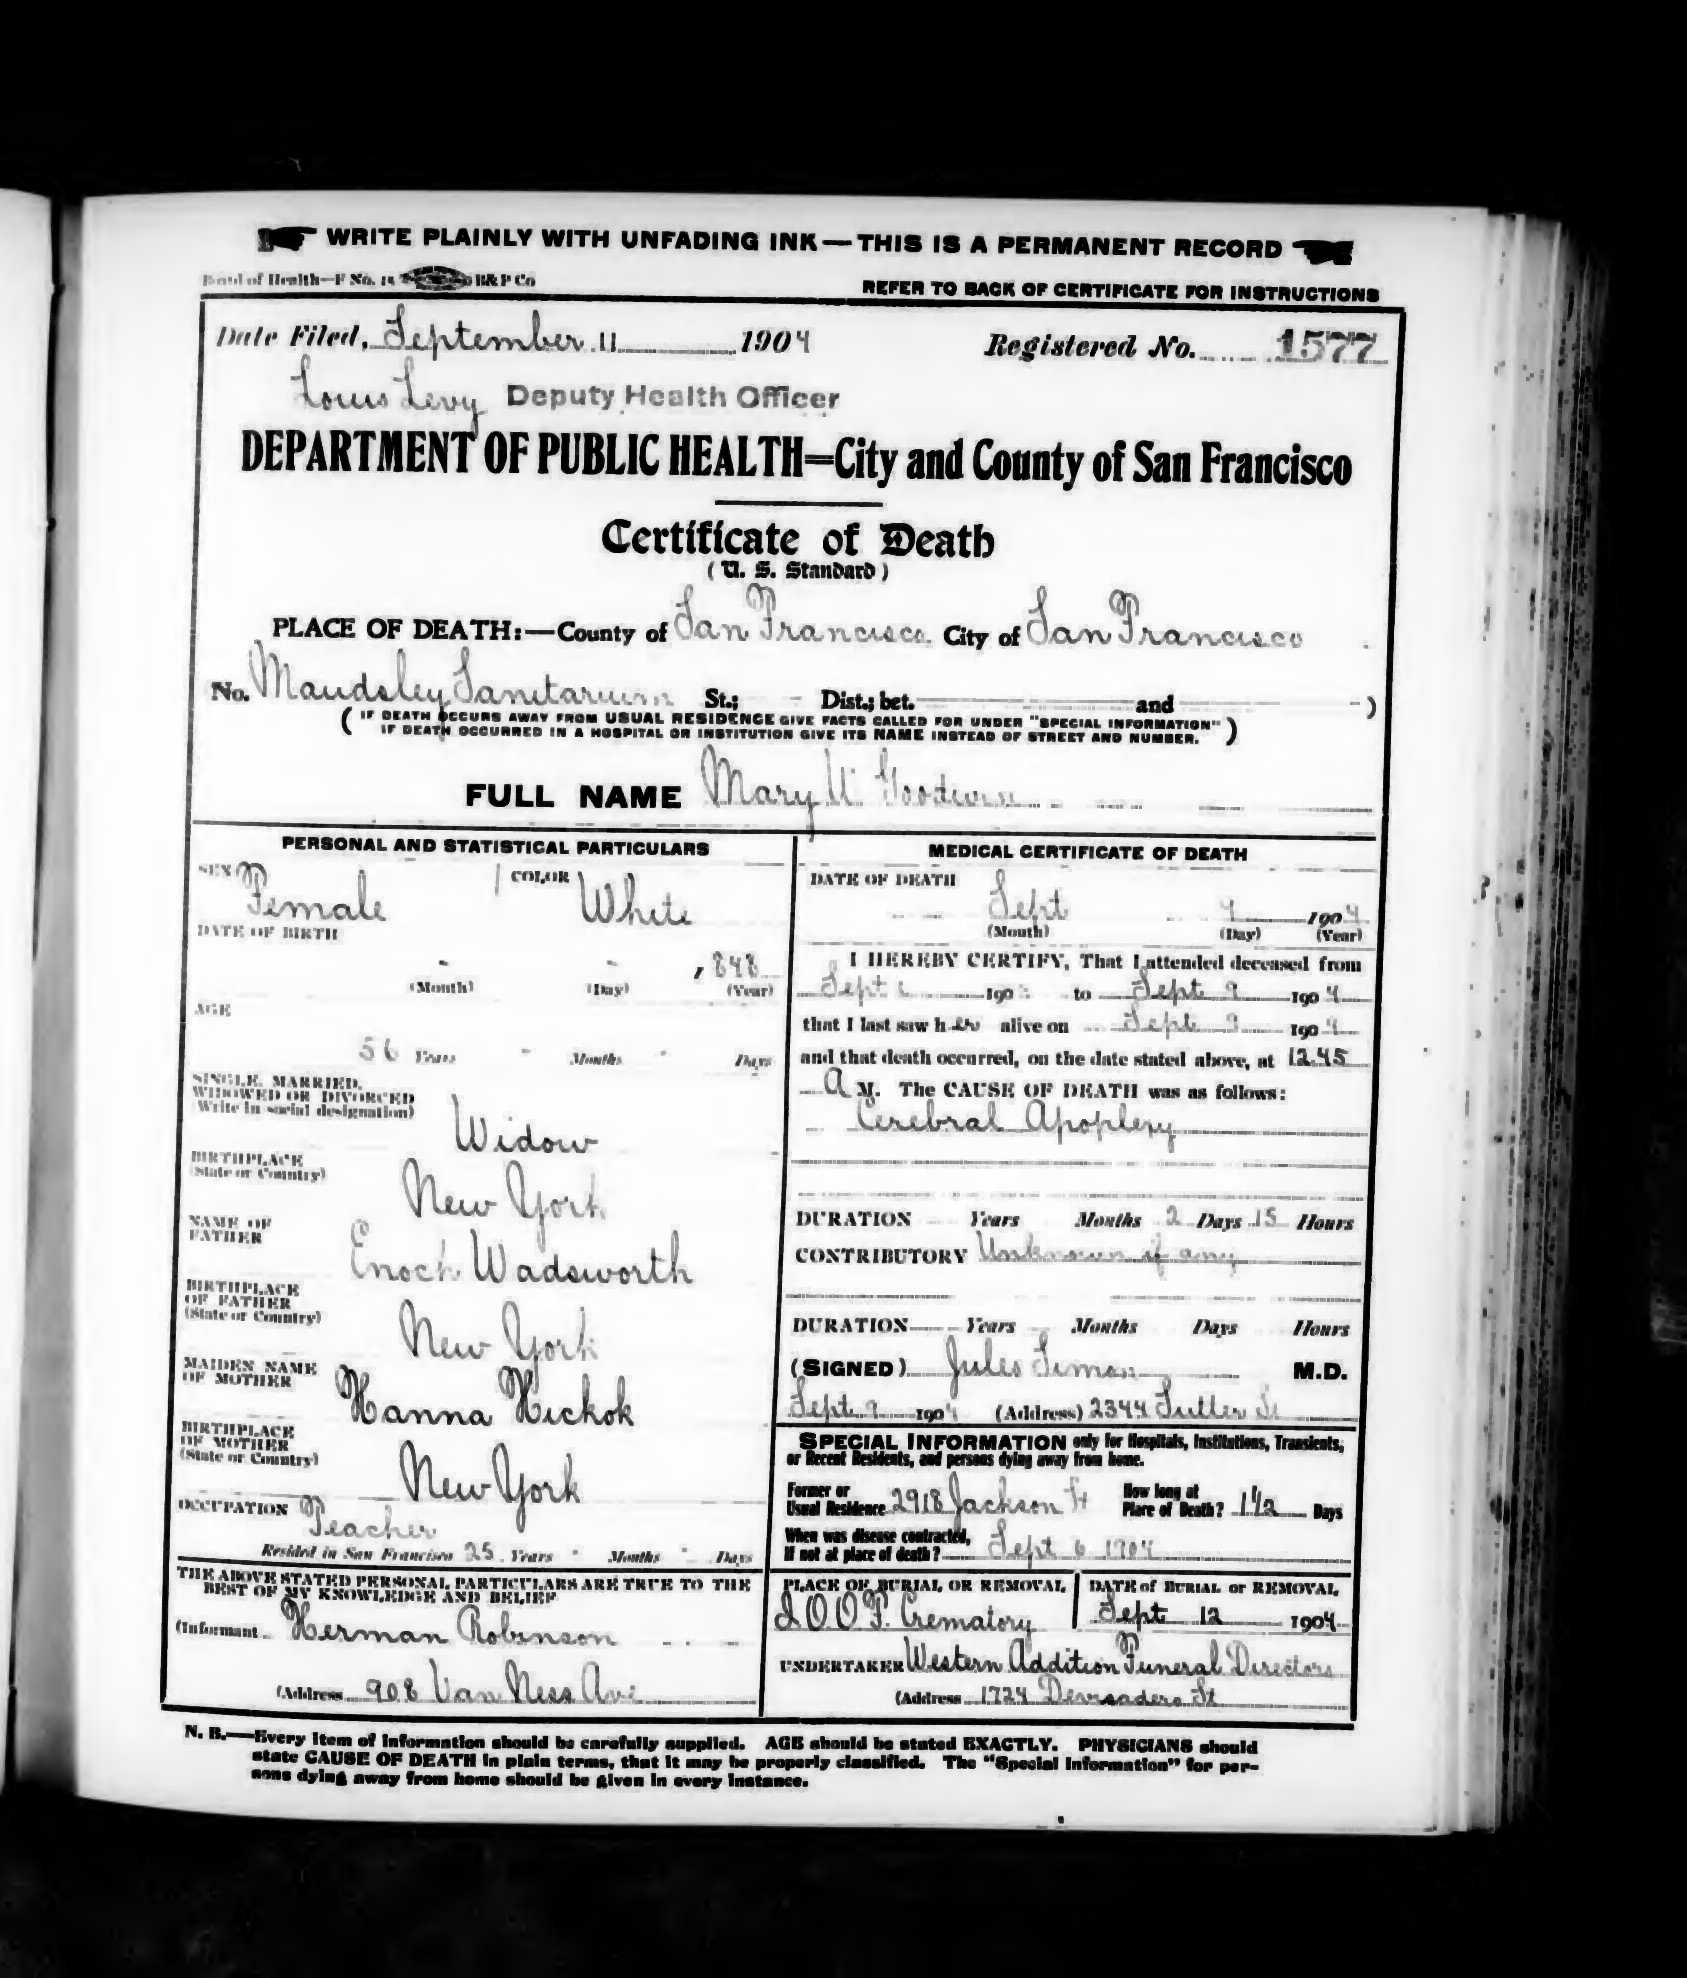 WRITE PLAINLY WITH UNFADING INK—THIS IS A PERMANENT RECORD
Board of Health—F No. 15 B&P Co
REFER TO BACK OF CERTIFICATE FOR INSTRUCTIONS
Date Filed, September 11 1904 Registered No. 1577
Louis Levy Deputy Health Officer
DEPARTMENT OF PUBLIC HEALTH=City and County of San Francisco
Certificate of Death
( U. S. Standard )
PLACE OF DEATH:—County of San Francisco City of San Francisco
No. Maudsley Sanitarium St.; Dist.; bet. and )
( IF DEATH OCCURS AWAY FROM USUAL RESIDENCE GIVE FACTS CALLED FOR UNDER "SPECIAL INFORMATION"
IF DEATH OCCURRED IN A HOSPITAL OR INSTITUTION GIVE ITS NAME INSTEAD OF STREET AND NUMBER. )
FULL NAME Mary W. Goodwin
PERSONAL AND STATISTICAL PARTICULARS
SEX Female COLOR White
DATE OF BIRTH
- - , 848
(Month) (Day) (Year)
AGE
56 Years - Months - Days
SINGLE, MARRIED,
WIDOWED OR DIVORCED
(Write in social designation)
Widow
BIRTHPLACE
(State or Country)
New York
NAME OF
FATHER
Enoch Wadsworth
BIRTHPLACE
OF FATHER
(State or Country)
New York
MAIDEN NAME
OF MOTHER
Hanna Hickok
BIRTHPLACE
OF MOTHER
(State or Country)
New York
OCCUPATION Teacher
Resided in San Francisco 25 Years - Months - Days
THE ABOVE STATED PERSONAL PARTICULARS ARE TRUE TO THE
BEST OF MY KNOWLEDGE AND BELIEF
(Informant Herman Robinson
(Address 908 Van Ness Ave
MEDICAL CERTIFICATE OF DEATH
DATE OF DEATH
Sept 9 1904
(Month) (Day) (Year)
I HEREBY CERTIFY, That I attended deceased from
Sept 190 to Sept 9 1904
that I last saw her alive on Sept 9 1904
and that death occurred, on the date stated above, at 12.45
A M. The CAUSE OF DEATH was as follows:
Cerebral Apoplexy
DURATION Years Months 2 Days 15 Hours
CONTRIBUTORY Unknown if any
DURATION Years Months Days Hours
(SIGNED) Jules Simon M.D.
Sept 9 1904 (Address) 2344 Sutter St
SPECIAL INFORMATION only for Hospitals, Institutions, Transients,
or Recent Residents, and persons dying away from home.
Former or
Usual Residence 2918 Jackson St
How long at
Place of Death? 1½ Days
When was disease contracted,
If not at place of death? Sept 6 1904
PLACE OF BURIAL OR REMOVAL
I.O.O.F. Crematory
DATE of BURIAL or REMOVAL
Sept 12 1904
UNDERTAKER Western Addition Funeral Directors
(Address 1724 Devisadero St
N. B.—Every item of information should be carefully supplied. AGE should be stated EXACTLY. PHYSICIANS should
state CAUSE OF DEATH in plain terms, that it may be properly classified. The "Special Information" for per-
sons dying away from home should be given in every instance.